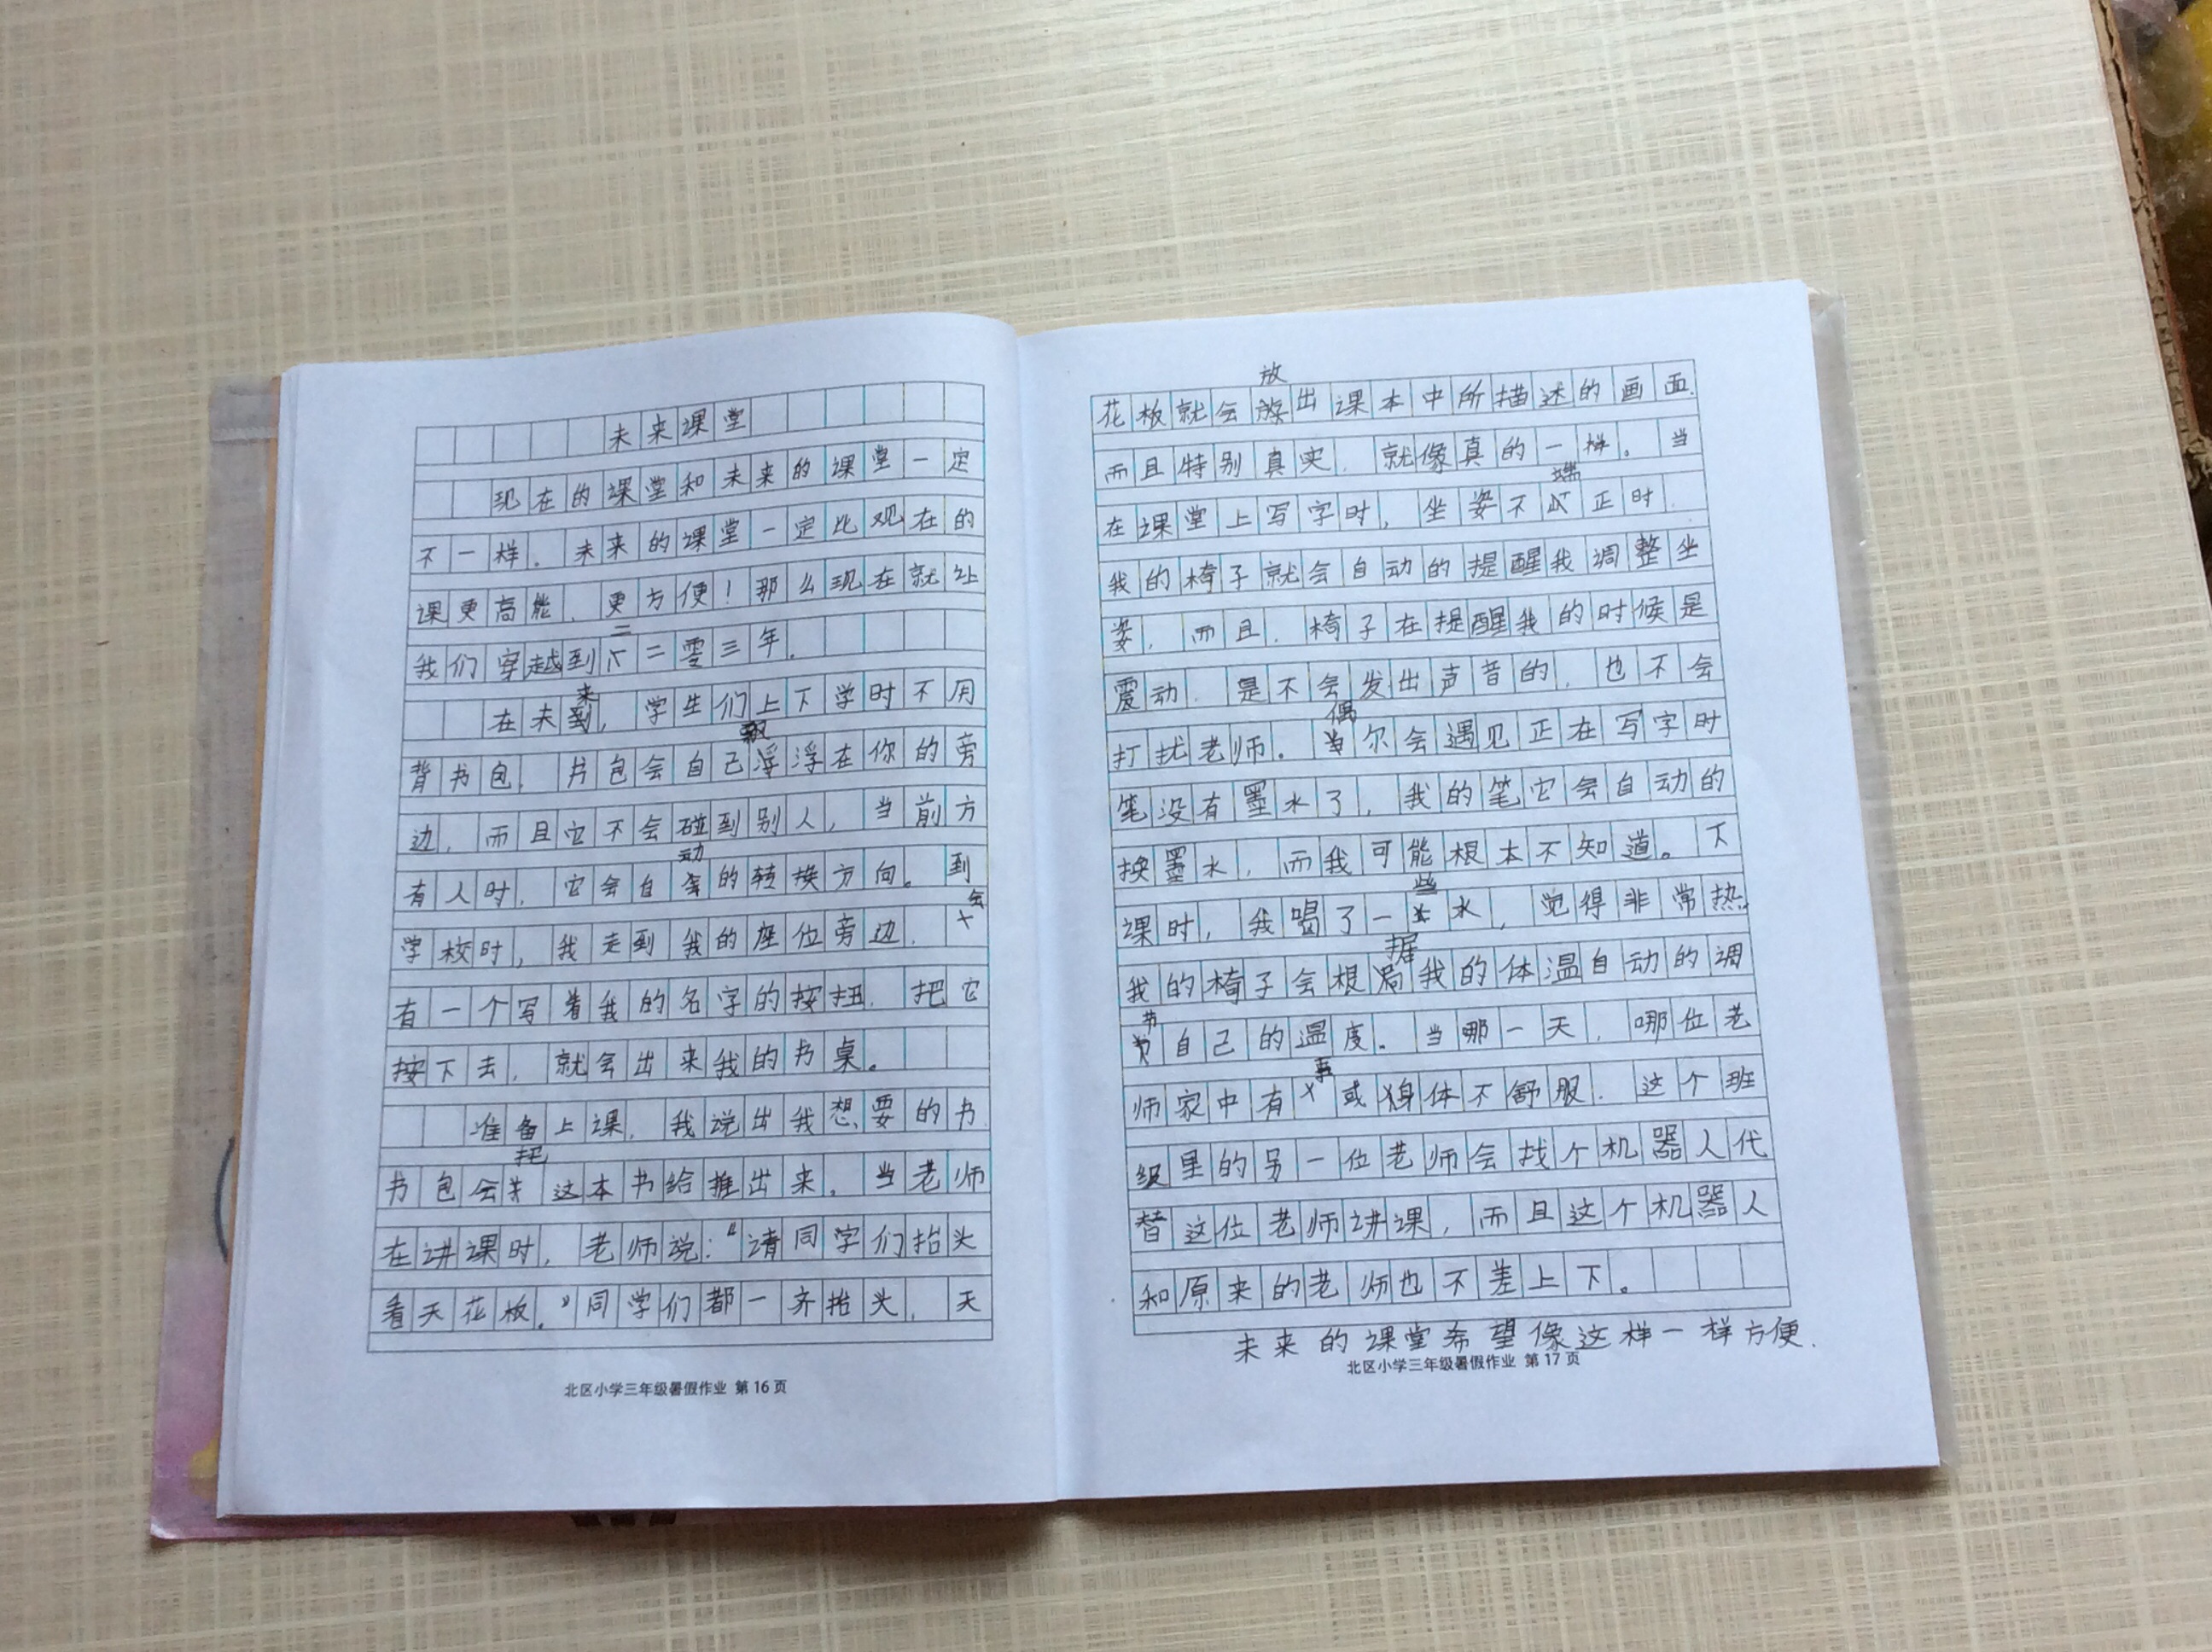 未来课堂
现在的课堂和未来的课堂一定
不一样。未来的课堂一定比观在的
课更高能、更方便！那么现在就让
我们穿越到二二零三年。
在未来，学生们上下学时不用
背书包，书包会自己飘浮在你的旁
边，而且它不会碰到别人，当前方
有人时，它会自动的转换方向。到
学校时，我走到我的座位旁边，会
有一个写着我的名字的按扭，把它
按下去，就会出来我的书桌。
准备上课，我说出我想要的书，
书包会把这本书给推出来。当老师
在讲课时，老师说：“请同学们抬头
看天花板。”同学们都一齐抬头，天
北区小学三年级暑假作业 第16页
花板就会放出课本中所描述的画面，
而且特别真实，就像真的一样。当
在课堂上写字时，坐姿不端正时，
我的椅子就会自动的提醒我调整坐
姿，而且，椅子在提醒我的时候是
震动，是不会发出声音的，也不会
打扰老师。偶尔会遇见正在写字时
笔没有墨水了，我的笔它会自动的
换墨水，而我可能根本不知道。下
课时，我喝了一些水，觉得非常热，
我的椅子会根据我的体温自动的调
节自己的温度。当哪一天，哪位老
师家中有事或身体不舒服，这个班
级里的另一位老师会找个机器人代
替这位老师讲课，而且这个机器人
和原来的老师也不差上下。
未来的课堂希望像这样一样方便.
北区小学三年级暑假作业 第17页